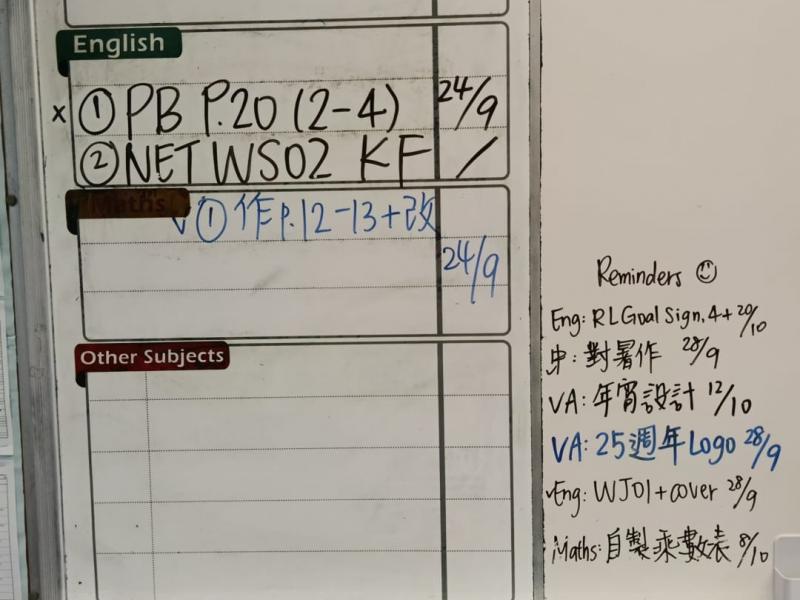 English
x ① PB P.20 (2-4) 24/9
② NET WS02 KF /
Maths
✓ ① 作 p.12-13+改
24/9
Other Subjects
Reminders ☺
Eng: RL Goal Sign, 4+ 20/10
中: 對暑作 28/9
VA: 年宵設計 12/10
VA: 25週年 Logo 28/9
✓Eng: WJ01+cover 28/9
Maths: 自製乘數表 8/10